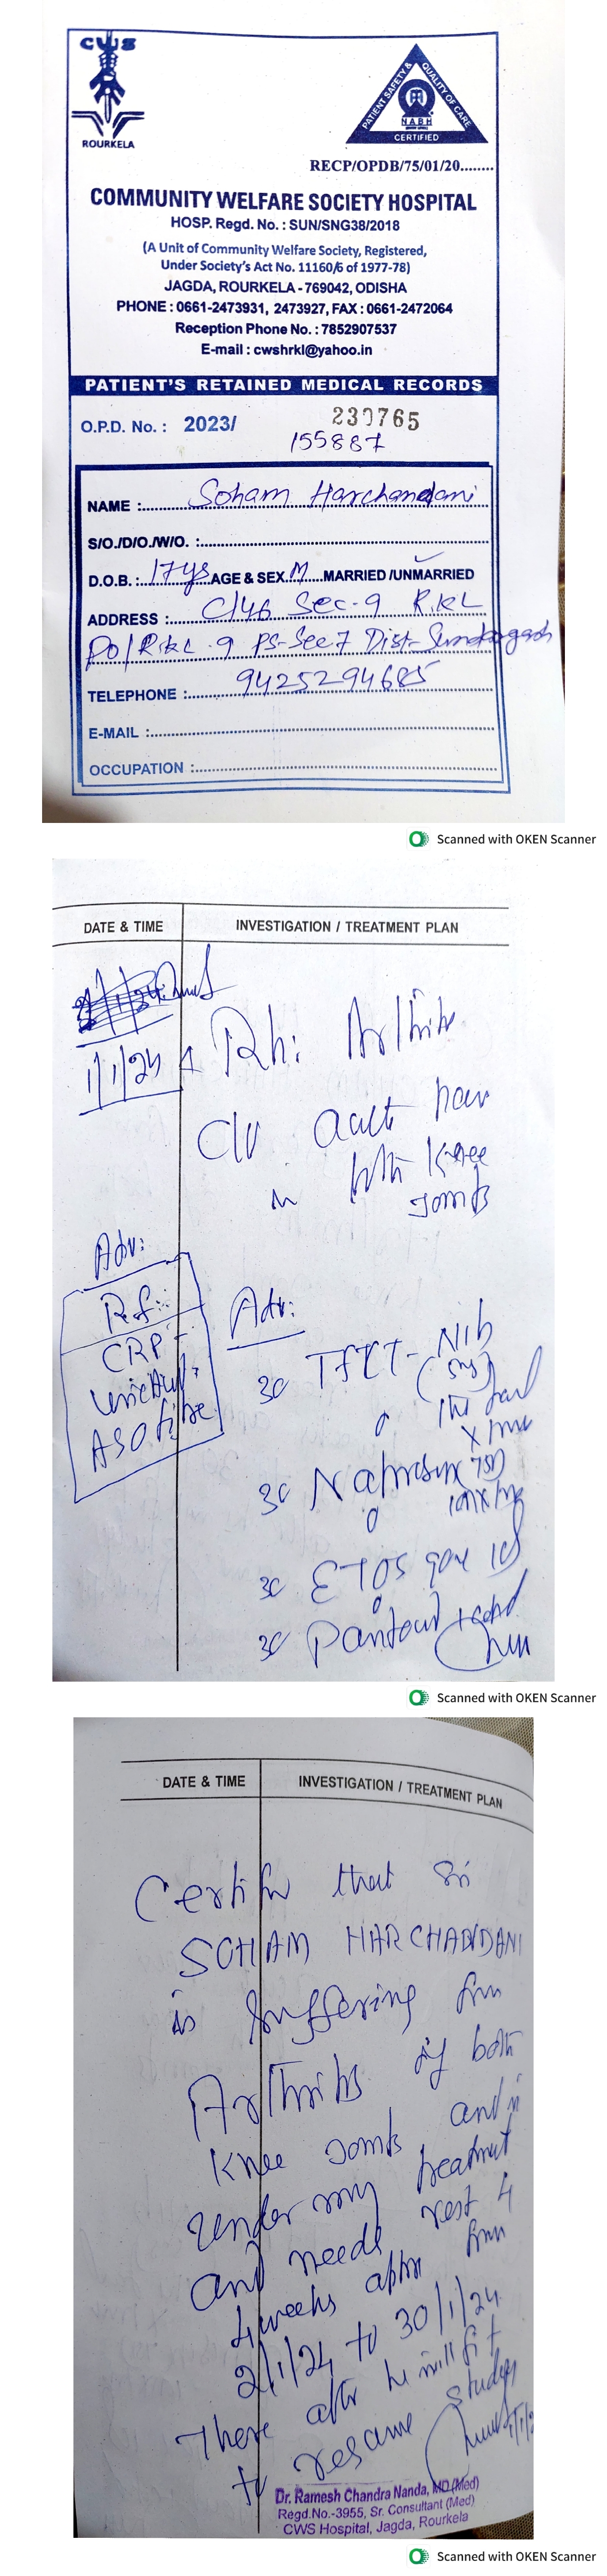 CWS
ROURKELA
PATIENT SAFETY & QUALITY OF CARE
NABH
CERTIFIED
RECP/OPDB/75/01/20........
COMMUNITY WELFARE SOCIETY HOSPITAL
HOSP. Regd. No. : SUN/SNG38/2018
(A Unit of Community Welfare Society, Registered,
Under Society's Act No. 11160/6 of 1977-78)
JAGDA, ROURKELA - 769042, ODISHA
PHONE : 0661-2473931, 2473927, FAX : 0661-2472064
Reception Phone No. : 7852907537
E-mail : cwshrkl@yahoo.in
PATIENT'S RETAINED MEDICAL RECORDS
O.P.D. No. : 2023/ 230765
155887
NAME : Soham Harchandani
S/O./D/O./W/O. :
D.O.B. : 17ys AGE & SEX M MARRIED /UNMARRIED
ADDRESS : C/46 Sec-9 RKL
PO/RKL-9 PS-Sec7 Dist-Sundargarh
TELEPHONE : 9425294685
E-MAIL :
OCCUPATION :
Scanned with OKEN Scanner
DATE & TIME INVESTIGATION / TREATMENT PLAN
1/1/24 Rh: Arthritis
C/o Acute pain
in both Knee
Joints
Adv:
CRP
ASO titre
Adv:
30
30
30 ETOS
30
Scanned with OKEN Scanner
DATE & TIME INVESTIGATION / TREATMENT PLAN
Certify that Sri
SOHAM HARCHANDANI
is suffering from
Arthritis of both
Knee Joints and is
under my treatment
and needs rest 4
4 weeks from
2/1/24 to 30/1/24
There after he will fit
to resume studies
Dr. Ramesh Chandra Nanda, MD (Med)
Regd.No.-3955, Sr. Consultant (Med)
CWS Hospital, Jagda, Rourkela
Scanned with OKEN Scanner